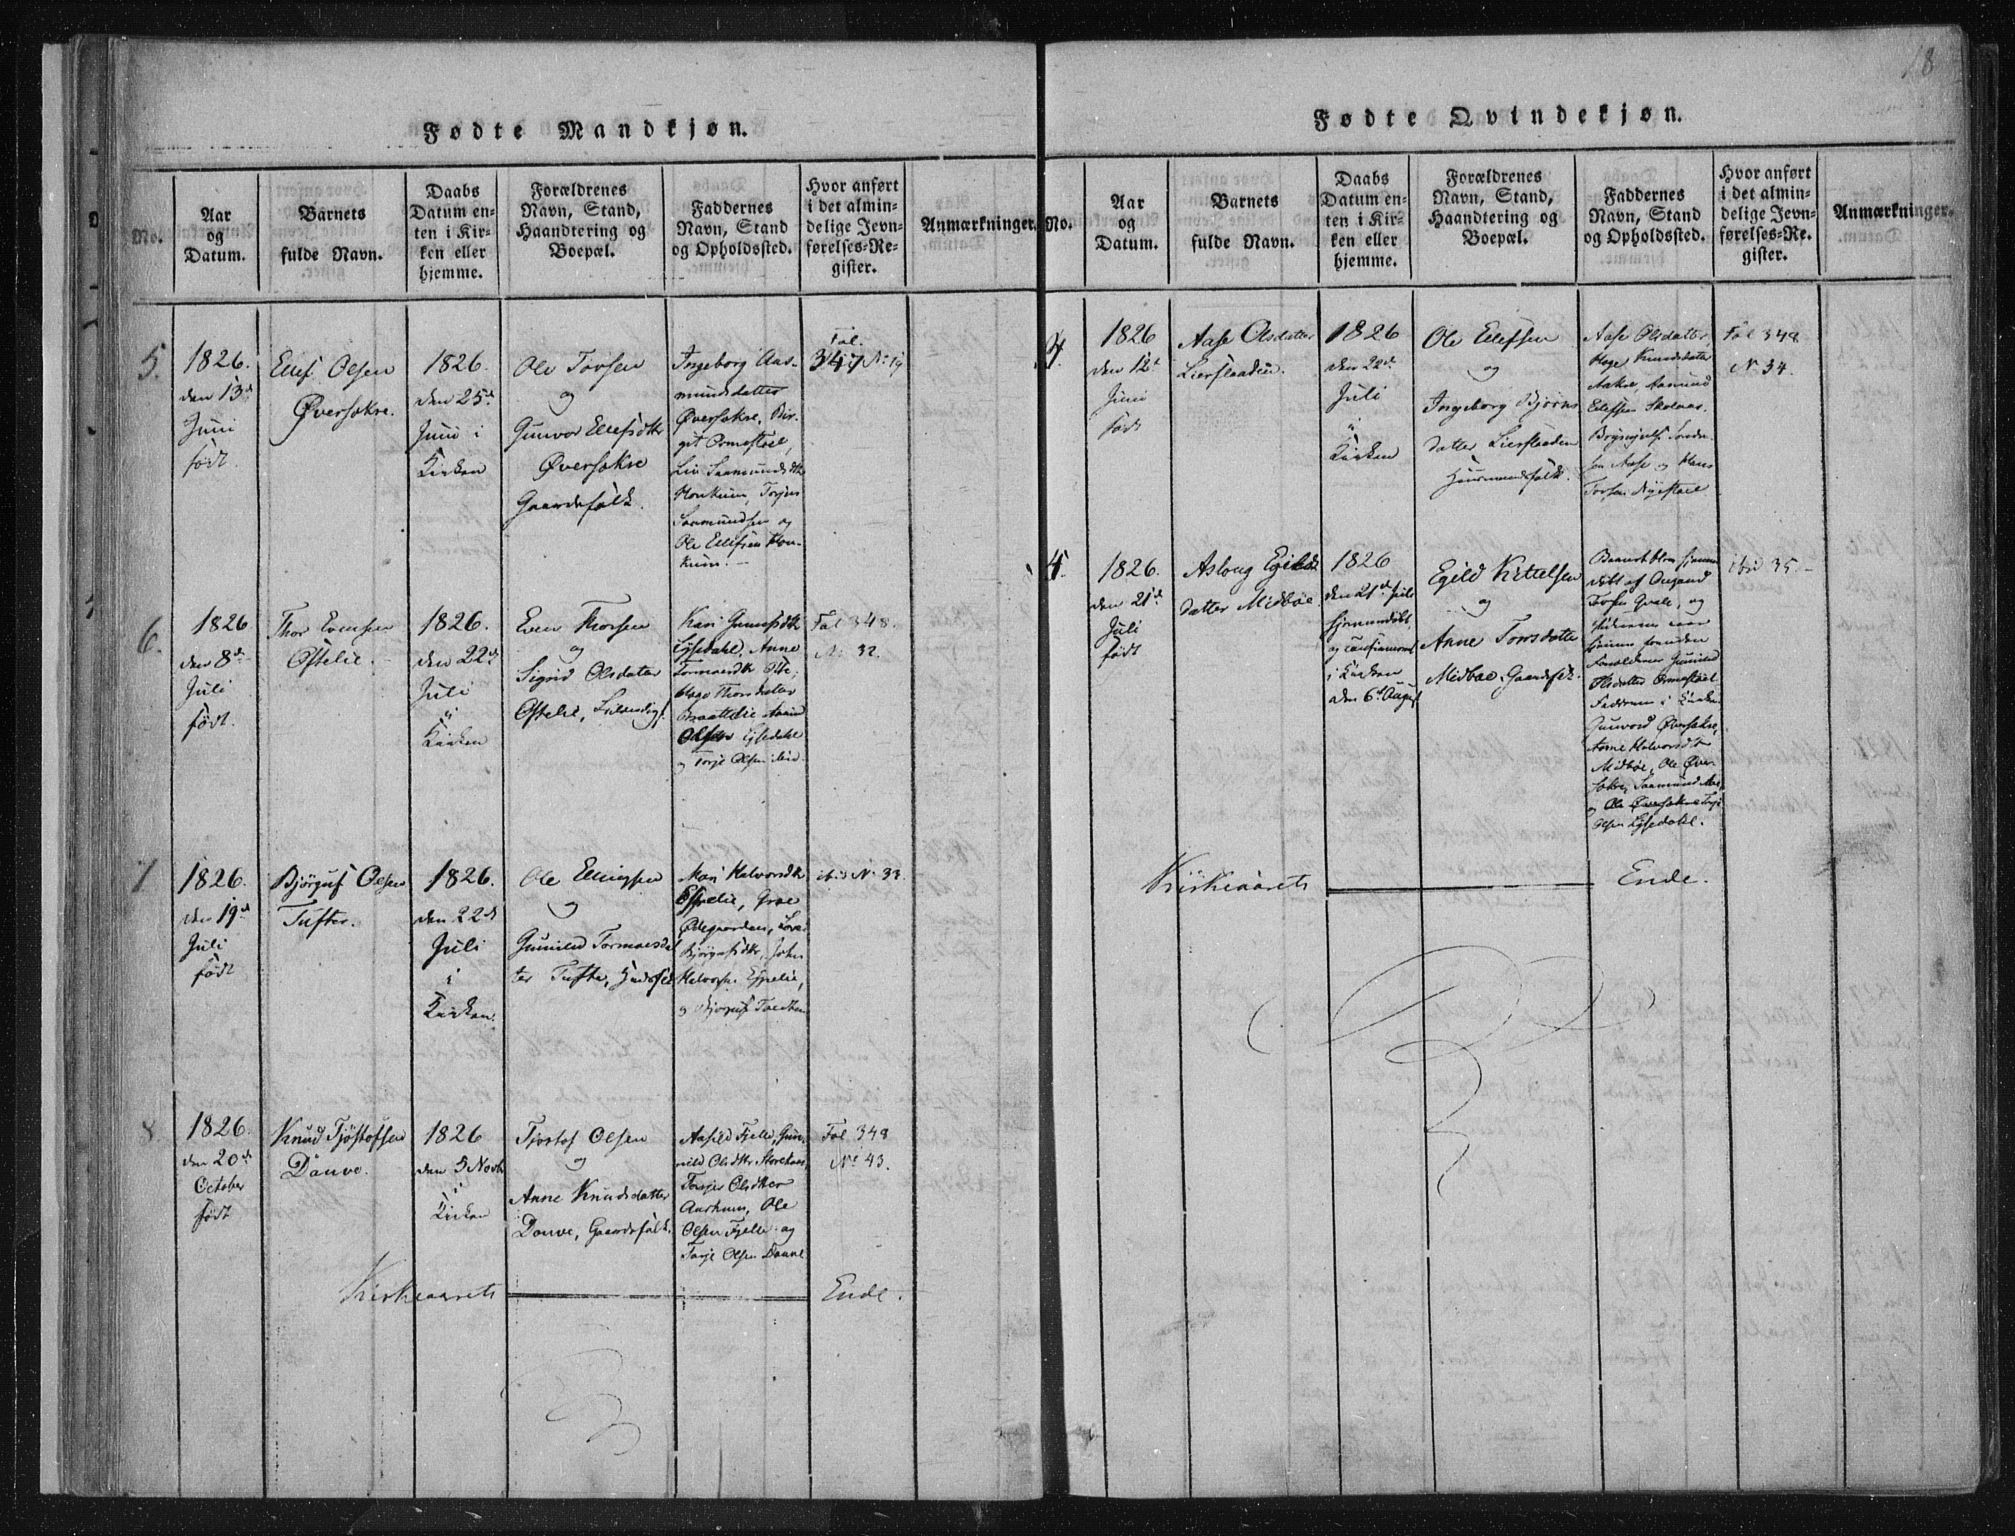 18
Fødte Mandkjøn.
No.
Aar
og
Datum.
Barnets
fulde Navn.
Daabs
Datum en-
ten i Kir-
ken eller
hjemme.
Forældrenes
Navn, Stand,
Haandtering og
Boepæl.
Faddernes
Navn, Stand
og Opholdssted.
Hvor anført
i det almin-
delige Jevn-
førelses-Re-
gister.
Anmærkninger.
5.
1826.
den 13de
Juni
født.
Ellef Olsen
Øversakre.
1826.
den 25de
Juni i
Kirken
Ole Torsen
og
Gunvor Ellefsdtr
Øversakre
Gaardefolk.
Ingeborg Aas-
mundsdatter
Øversakre, Bir-
git Ormestøel,
Liv Saamundsdtr
Torjus
Saamundsen og
Ole Ellefsen
Fol.
347 No 19
6.
1826
den 8de
Juli
født.
Thor Evensen
Østelie.
1826.
den 22de
Juli
i
Kirken
Even Thorsen
og
Sigrid Olsdatter
Østelie,
Kari
Lysedahl, Anne
Aage Thorsdatter
Braattelie
Olsen Lysedahl
og Torje Olsen
Fol 348.
No 32.
7
1826.
den 19de
Juli
født
Bjørguf Olsen
Tufte.
1826.
den 22de
Juli
i
Kirken.
Ole Ellingsen
og
Gunild Tormosdat
ter Tufte,
Mari Halvorsdtr
Espelie, Groe
Ødegaarden,
Bjørgufsdtr, John
Halvorsen Espelie,
og Bjørguf
ibid No 33
8
1826.
den 20de
October
født
Knud Tjøstofsen
Douve.
1826
den 5 Novb
i
Kirken
Tjostof Olsen
og
Anne Knudsdatter
Douve, Gaardefolk.
Aasild Fjelle, Gun-
nild Olsdtr
Torjer Olsdtter
Ole
Olsen Fjelle og
Torje Olsen Douve
Fol 348
No 43.
Kirkeaarets Ende.
Fødte Qvindekjøn.
No.
Aar
og
Datum.
Barnets
fulde Navn.
Daabs
Datum en-
ten i Kir-
ken eller
hjemme.
Forældrenes
Navn, Stand,
Haandtering og
Boepæl.
Faddernes
Navn, Stand
og Opholdssted.
Hvor anført
i det almin-
delige Jevn-
førelses-Re-
gister.
Anmærkninger.
1826
den 12te
Juni
født
Aase Olsdatter
Lierslaaden.
1826
den 22de
Juli
i
Kirken
Ole Ellefsen
og
Ingeborg Bjørns
datter Lierslaaden
Huusmandsfolk.
Aase Olsdatter,
Aage Knudsdatter
Aakre, Aamund
Ellefsen
Brynjulf
Aase og Hans
Torsen
Fol 348
No 34.
4.
1826.
den 21de
Juli
født
Asloug Egilds
datter Midbøe
1826
den 21de Juli
hjemmedøbt,
i Kirken
den 6te August
Egild Kittelsen
og
Anne Torsdatter
Midbøe, Gaardefolk.
Barnet blev hjemme
døbt af Ougund
Torsen Qvale, og
hjemme foruden
Forældrene Gunild
Olsdatter Ormestøel.
Faddere i Kirken
Gunvord Øversakre,
Anne Halvorsdtr
Midbøe, Ole Øver-
sakre, Saamund
og Ole Øversakre, Torje
Olsen Lysedahl.
ibid 35
Kirkeaarets Ende.